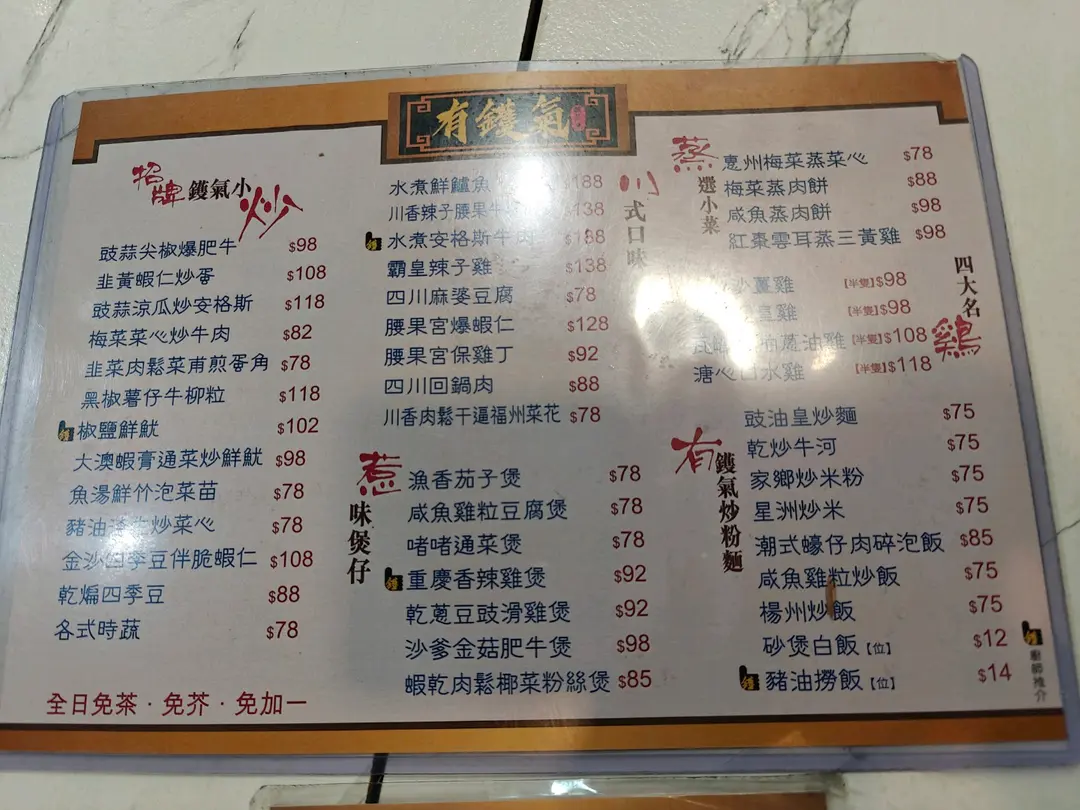 有鑊氣
招牌鑊氣小炒
豉蒜尖椒爆肥牛 $98
韭黃蝦仁炒蛋 $108
豉蒜涼瓜炒安格斯 $118
梅菜菜心炒牛肉 $82
韭菜肉鬆菜甫煎蛋角 $78
黑椒薯仔牛柳粒 $118
椒鹽鮮魷 $102
大澳蝦膏通菜炒鮮魷 $98
魚湯鮮竹泡菜苗 $78
豬油 炒菜心 $78
金沙四季豆伴脆蝦仁 $108
乾煸四季豆 $88
各式時蔬 $78
全日免茶·免芥·免加一
川式口味
水煮鮮鱸魚 $188
川香辣子腰果牛 $138
水煮安格斯牛肉 $188
霸皇辣子雞 $138
四川麻婆豆腐 $78
腰果宮爆蝦仁 $128
腰果宮保雞丁 $92
四川回鍋肉 $88
川香肉鬆干逼福州菜花 $78
惹味煲仔
漁香茄子煲 $78
咸魚雞粒豆腐煲 $78
啫啫通菜煲 $78
重慶香辣雞煲 $92
乾蔥豆豉滑雞煲 $92
沙爹金菇肥牛煲 $98
蝦乾肉鬆椰菜粉絲煲 $85
蒸選小菜
惠州梅菜蒸菜心 $78
梅菜蒸肉餅 $88
咸魚蒸肉餅 $98
紅棗雲耳蒸三黃雞 $98
四大名雞
沙薑雞 【半隻】$98
雞 【半隻】$98
油雞 【半隻】$108
溏心口水雞 【半隻】$118
有鑊氣炒粉麵
豉油皇炒麵 $75
乾炒牛河 $75
家鄉炒米粉 $75
星洲炒米 $75
潮式蠔仔肉碎泡飯 $85
咸魚雞粒炒飯 $75
楊州炒飯 $75
砂煲白飯【位】 $12
豬油撈飯【位】 $14
廚師推介